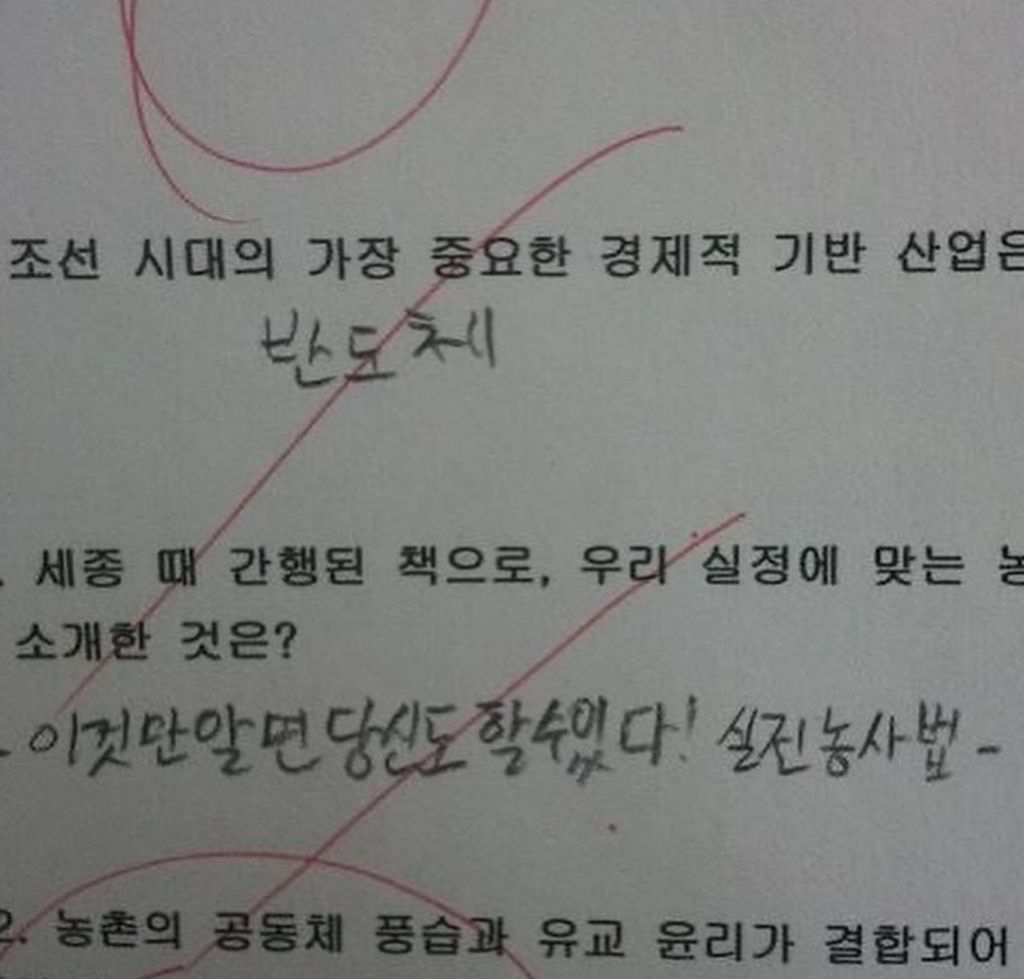 조선 시대의 가장 중요한 경제적 기반 산업은
반도체
세종 때 간행된 책으로, 우리 실정에 맞는 농
소개한 것은?
- 이것만 알면 당신도 할 수 있다! 실전 농사법 -
2. 농촌의 공동체 풍습과 유교 윤리가 결합되어